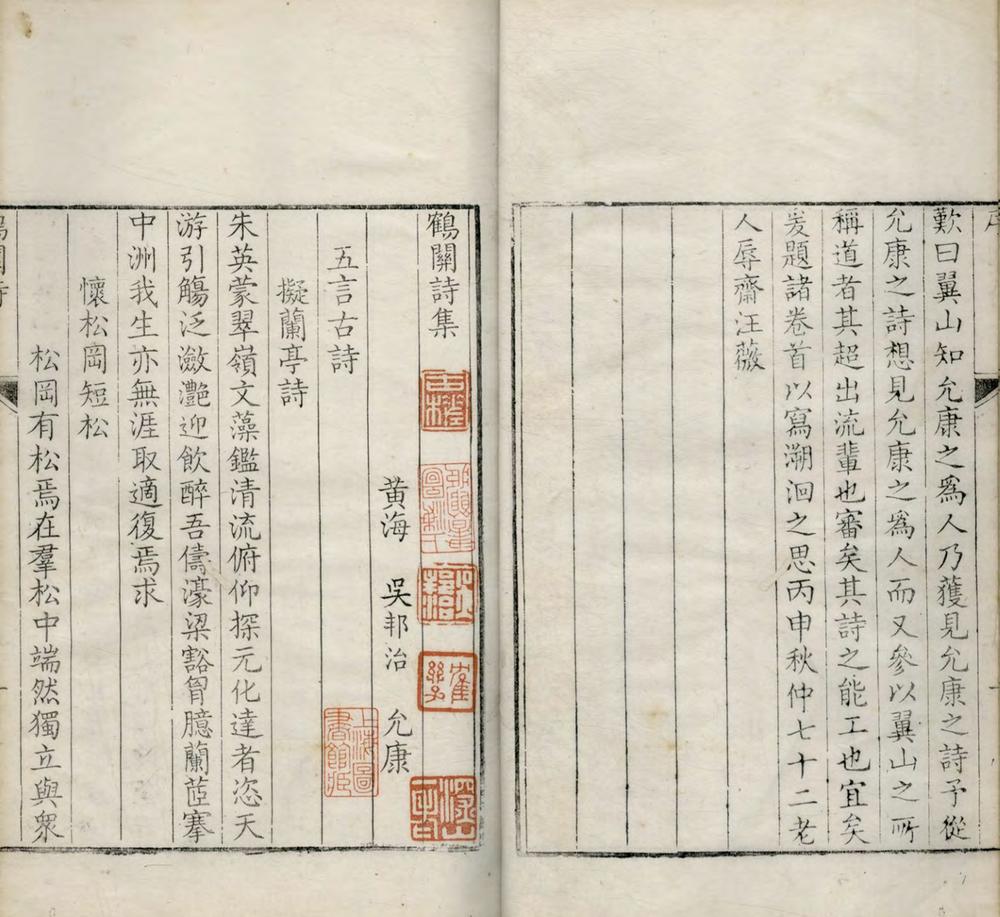 歎曰翼山知允康之爲人乃獲見允康之詩予從
允康之詩想見允康之爲人而又參以翼山之所
稱道者其超出流輩也審矣其詩之能工也宜矣
爰題諸卷首以寫溯洄之思丙申秋仲七十二老
人辱齋汪薇
鶴關詩集
黃海 吳邦治 允康
五言古詩
擬蘭亭詩
朱英蒙翠嶺文藻鑑清流俯仰探元化達者恣天
游引觴泛瀲灩迎飲醉吾儔濠梁豁胷臆蘭茝搴
中洲我生亦無涯取適復焉求
懷松岡短松
松岡有松焉在羣松中端然獨立與衆
上海圖
書館藏